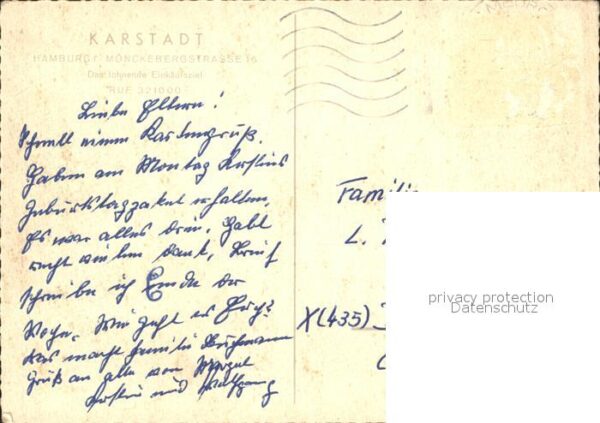 KARSTADT
HAMBURG 1 · MÖNCKEBERGSTRASSE 16
Das lohnende Einkaufsziel
RUF 321000
Liebe Eltern!
Schnell einen Kartengruß.
Haben am Montag Kerstins
Geburtstagspaket erhalten,
Es war alles drin. Habt
recht vielen Dank, Brief
schreibe ich Ende der
Woche. Wie geht es Euch?
Was macht Familie
Gruß an alle von
Kerstin und Wolfgang
Familie
L.
X(435)
privacy protection
Datenschutz